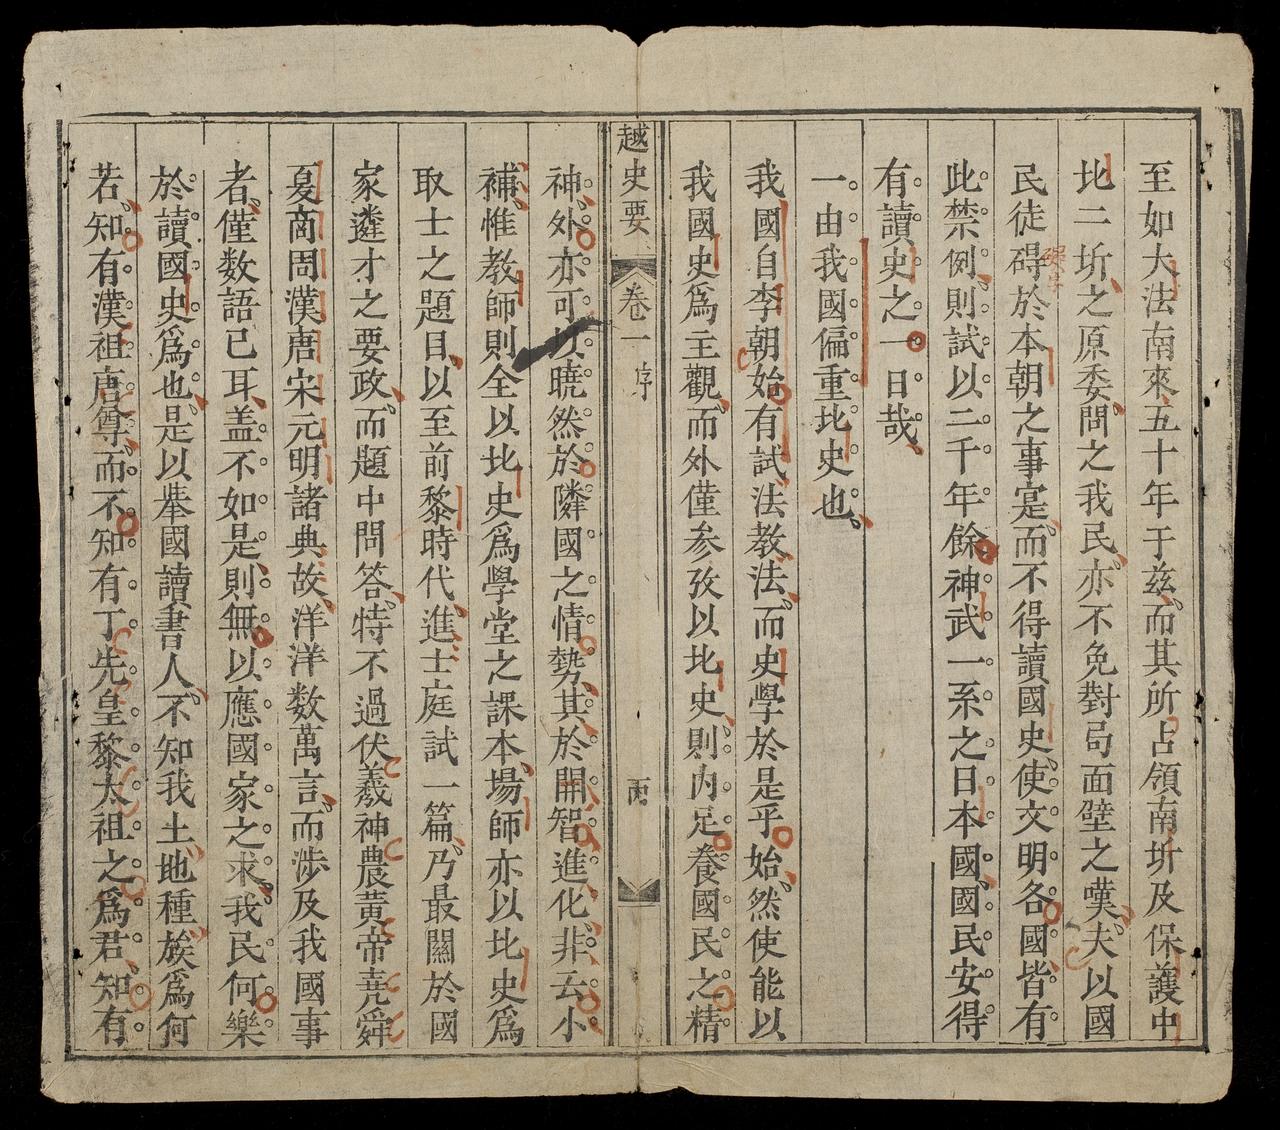 至如大法南來五十年于茲而其所占領南圻及保護中
北二圻之原委問之我民亦不免對局面壁之嘆夫以國
民徒碍於本朝之事寔而不得讀國史使文明各國皆有
此禁例則試以二千年餘神武一系之日本國國民安得
有讀史之一日哉
一由我國偏重北史也
我國自李朝始有試法教法而史學於是乎始然使能以
我國史爲主觀而外僅參攷以北史則內足養國民之精
越史要 卷一 序 丙
神外亦可以曉然於隣國之情勢其於開智進化非云小
補惟教師則全以北史爲學堂之課本場師亦以北史爲
取士之題目以至前黎時代進士庭試一篇乃最關於國
家遴才之要政而題中問答特不過伏羲神農黃帝堯舜
夏商周漢唐宋元明諸典故洋洋数萬言而涉及我國事
者僅数語已耳盖不如是則無以應國家之求我民何樂
於讀國史爲也是以舉國讀書人不知我土地種族爲何
若知有漢祖唐尊而不知有丁先皇黎太祖之爲君知有